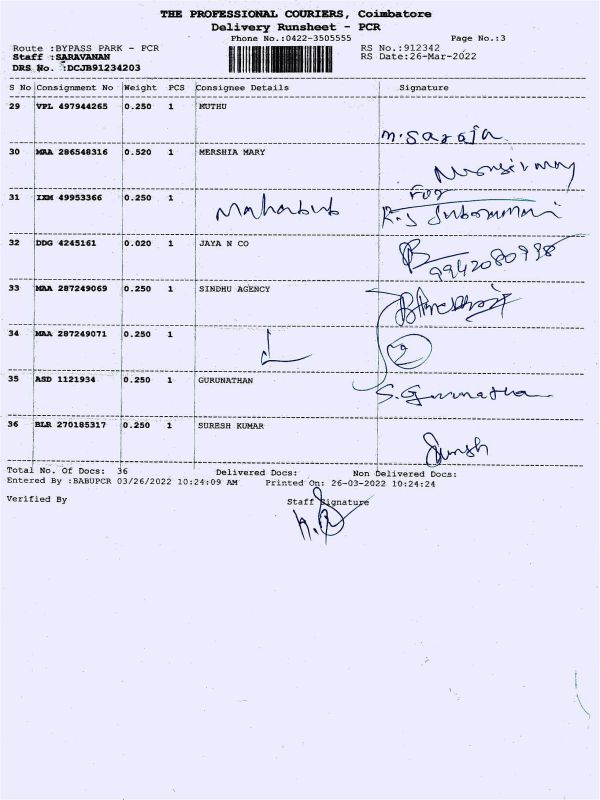 THE PROFESSIONAL COURIERS, Coimbatore
Delivery Runsheet - PCR
Phone No.:0422-3505555 Page No.:3
Route :BYPASS PARK - PCR RS No.:912342
Staff :SARAVANAN RS Date:26-Mar-2022
DRS No. :DCJB91234203
S No Consignment No Weight PCS Consignee Details Signature
29 VPL 497944265 0.250 1 MUTHU
m. Saroja
30 MAA 286548316 0.520 1 MERSHIA MARY
31 IXM 49953366 0.250 1 For
Mahabub R.S Subramani
32 DDG 4245161 0.020 1 JAYA N CO
9942080998
33 MAA 287249069 0.250 1 SINDHU AGENCY
34 MAA 287249071 0.250 1
2
35 ASD 1121934 0.250 1 GURUNATHAN
S. Gurunathan
36 BLR 270185317 0.250 1 SURESH KUMAR
Suresh
Total No. Of Docs: 36 Delivered Docs: Non Delivered Docs:
Entered By :BABUPCR 03/26/2022 10:24:09 AM Printed On: 26-03-2022 10:24:24
Verified By Staff Signature